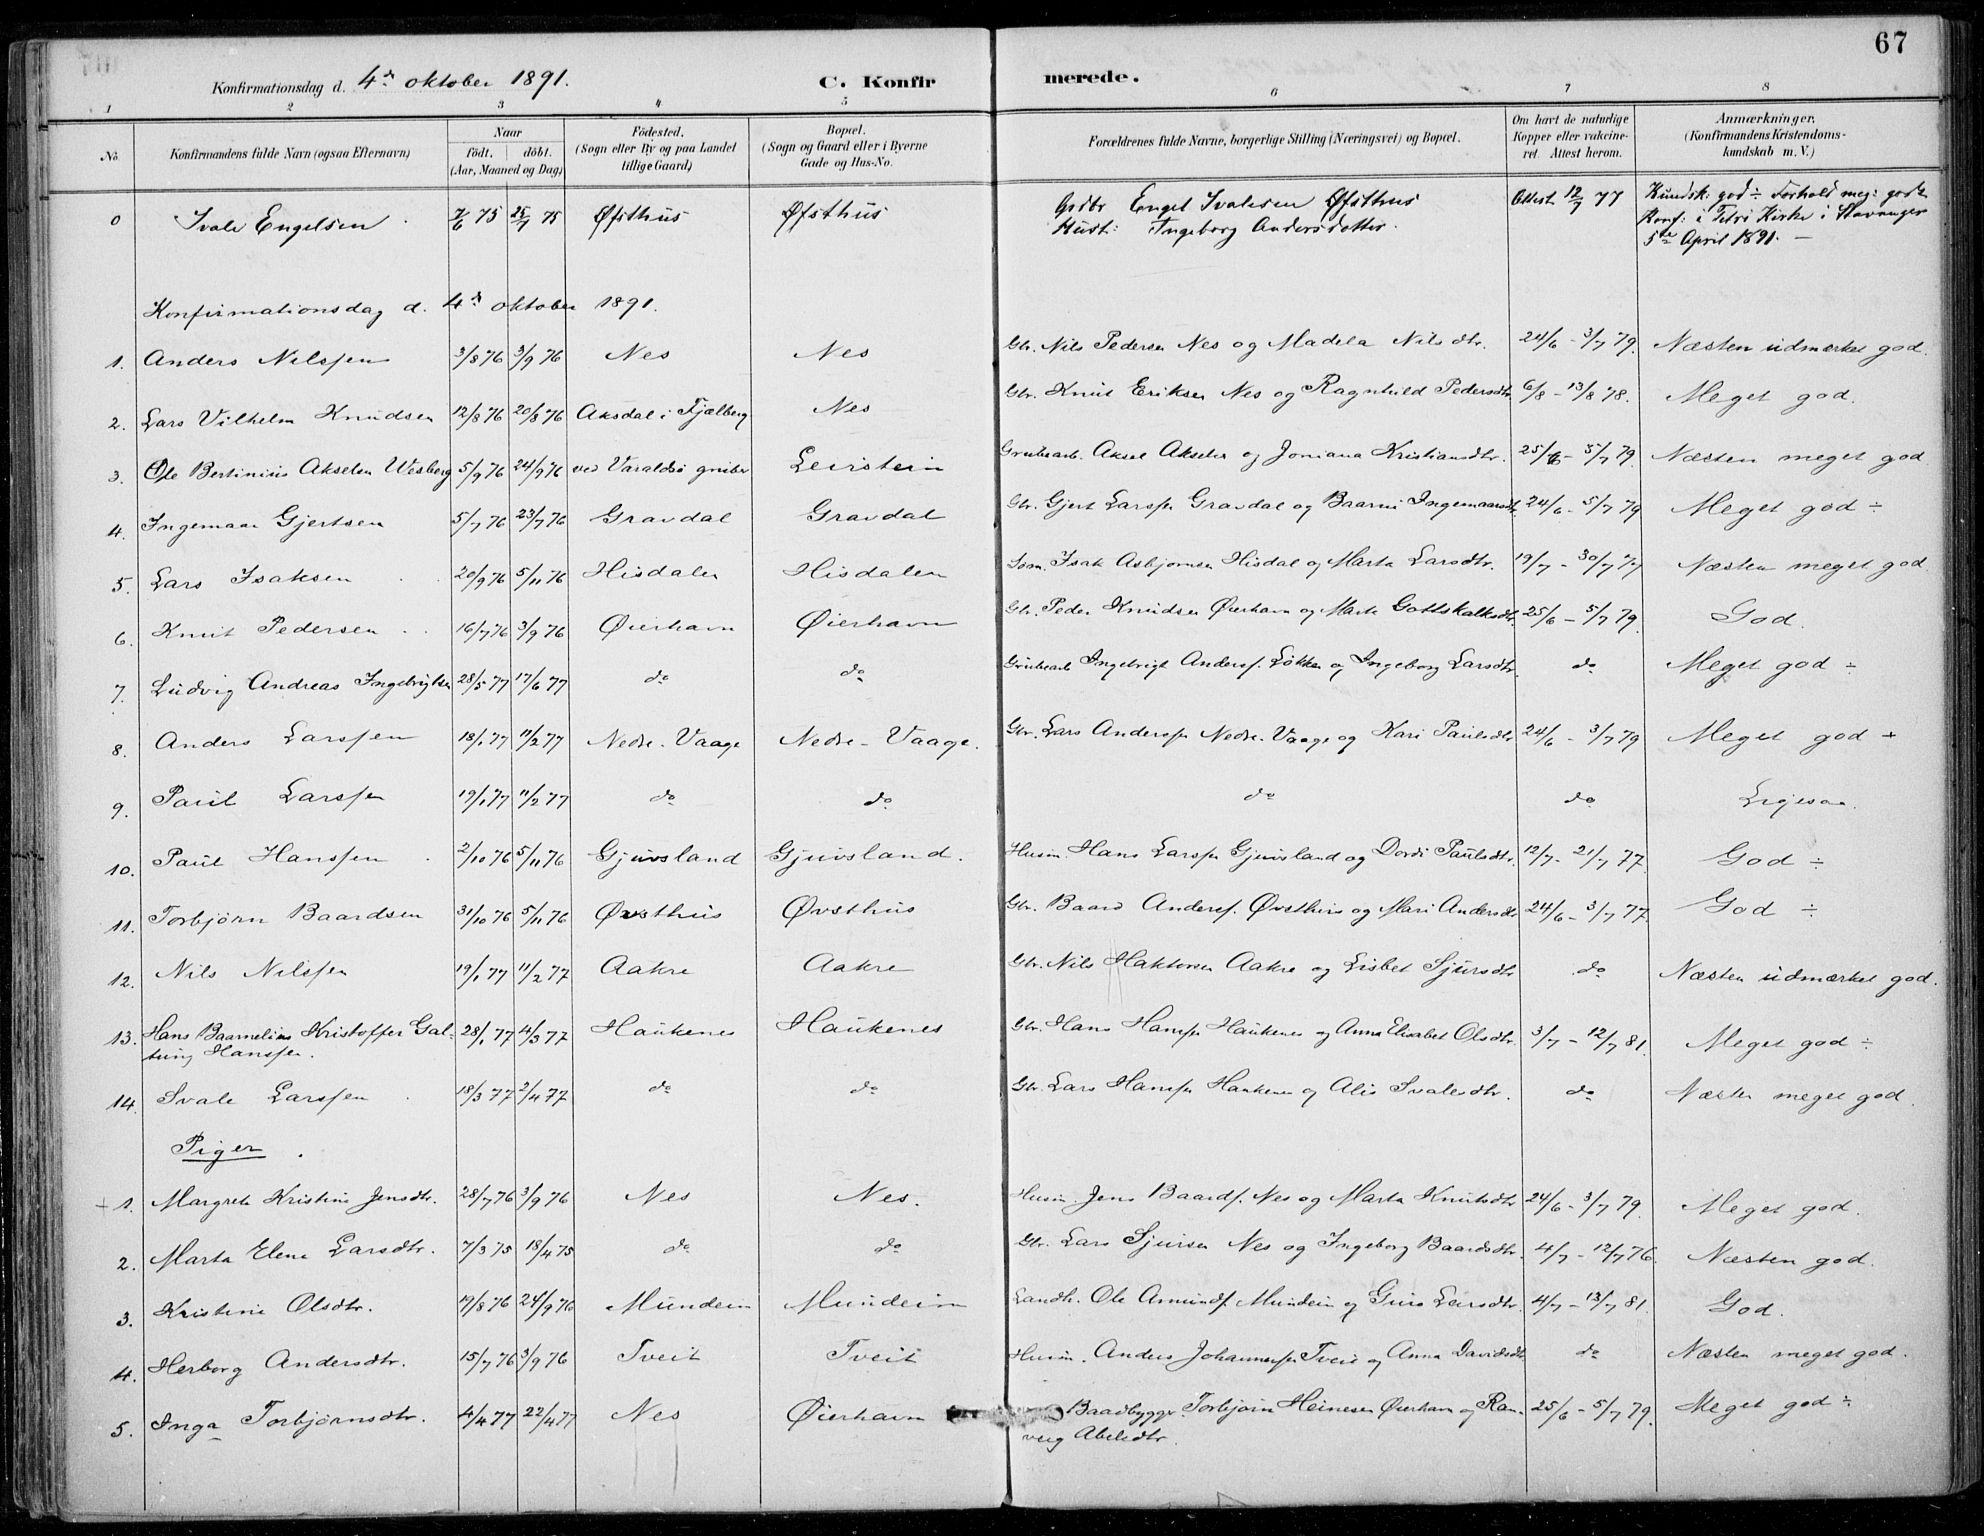 67
Konfirmationsdag d. 4de oktober 1891.
C. Konfirmerede.
1 2 3 4 5 6 7 8
No
Konfirmandens fulde Navn (ogsaa Efternavn)
Naar
födt. döbt.
(Aar, Maaned og Dag)
Födested.
(Sogn eller By og paa Landet
tillige Gaard)
Bopæl.
(Sogn og Gaard eller i Byerne
Gade og Hus-No.
Forældrenes fulde Navne, borgerlige Stilling (Næringsvei) og Bopæl.
Om havt de naturlige
Kopper eller vakcine-
ret. Attest herom.
Anmærkninger.
(Konfirmandens Kristendoms-
kundskab m. V.)
0 Svale Engelsen 7/6 75 25/7 75 Øfsthus Øfsthus Gdbr Engel Svalesen Øfsthus Attest 12/7 77 Kundsk: god ÷ Forhold meg: godt
Hust: Ingeborg Andersdotter. Konf: i Petri Kirke i Stavanger
5te April 1891. —
Konfirmationsdag d. 4de oktober 1891.
1. Anders Nilssen 3/8 76 3/9 76 Nes Nes Gbr. Nils Pedersen Nes og Madela Nilsdtr. 24/6 - 3/7 79. Næsten udmærket god.
2. Lars Vilhelm Knudsen 12/8 76 20/8 76 Aksdal i Fjælberg Nes Gbr. Knut Eriksen Nes og Ragnhild Pedersdtr. 6/8 - 13/8 78. Meget god.
3. Ole Bertinius Akselsen Wesberg 5/9 76 24/9 76 ved Varaldsö gruber Leirstein Grubearb. Aksel Akselsen og Joniana Kristiansdtr. 25/6 - 5/7 79. Næsten meget god
4. Ingemaar Gjertsen 5/7 76 23/7 76 Gravdal Gravdal Gbr. Gjert Larssen Gravdal og Baarni Ingemaarsdt. 24/6 - 5/7 79 Meget god ÷
5. Lars Isaksen 20/9 76 5/11 76 Hisdalen Hisdalen Isak Asbjørnsen Hisdal og Marta Larsdtr. 19/7 - 30/7 77 Næsten meget god
6. Knut Pedersen 16/7 76 3/9 76 Øierhavn Øierhavn Gbr. Peder Knudsen Øierhavn og Marta Gottskalksdtr. 25/6 - 5/7 79. God.
7. Ludvig Andreas Ingebrigtsen 28/5 77 17/6 77 do do Grubearb Ingebrigt Anderss. Løkken og Ingeborg Larsdtr. do Meget god ÷
8. Anders Larssen 18/1 77 11/2 77 Nedre-Vaage Nedre-Vaage. Gbr. Lars Anderssen Nedre-Vaage og Kari Paulsdtr 24/6 - 3/7 79 Meget god +
9. Paul Larssen 19/1 77 11/2 77 do do do do Ligesaa.
10. Paul Hanssen 2/10 76 5/11 76 Gjuvsland Gjuvsland. Husm. Hans Larssen Gjuvsland og Dordi Paulsdtr. 12/7 - 21/7 77. God ÷
11. Torbjørn Baardsen 31/10 76 5/11 76 Øvsthus Øvsthus Gbr. Baard Anderss. Øvsthus og Mari Andersdtr 24/6 - 3/7 77. God ÷
12. Nils Nilssen 19/1 77 11/2 77 Aakre Aakre Gbr. Nils Haktorsen Aakre og Lisbet Sjursdtr do Næsten udmærket god.
13. Hans Baarnelius Kristoffer Gal- 28/1 77 4/3 77 Haukenes Haukenes Gbr. Hans Hanssen Haukenes og Anna Elisabet Olsdtr. 3/7 - 12/7 81. Meget god ÷
tung Hanssen.
14. Svale Larssen 18/3 77 2/4 77 do do Gbr. Lars Hanssen Haukenes og Alis Svalesdtr. do Næsten meget god.
Piger.
+ 1. Margreta Kristine Jensdtr. 28/7 76 3/9 76 Nes Nes. Husm. Jens Baardss. Nes og Marta Knutsdtr 24/6 - 3/7 79. Meget god.
2. Marta Elene Larsdtr. 7/3 75 18/4 75 do do Gbr. Lars Sjursen Nes og Ingeborg Baardsdtr. 4/7 - 12/7 76. Næsten god.
3. Kristine Olsdtr. 19/8 76 24/9 76 Mundeim Mundeim Landh. Ole Amundss. Mundeim og Guro Larsdtr. 4/7 - 13/7 81. God.
4. Herborg Andersdtr. 15/7 76 3/9 76 Tveit Tveit Husm. Anders Johannessen Tveit og Anna Davidsdtr do Næsten meget god.
5. Inga Torbjørnsdtr. 4/4 77 22/4 77 Nes Øierhavn Baadbygger Torbjørn Heinesen Øierhavn og Ran- 25/6 - 5/7 79. Meget god ÷
veig Abelsdtr.